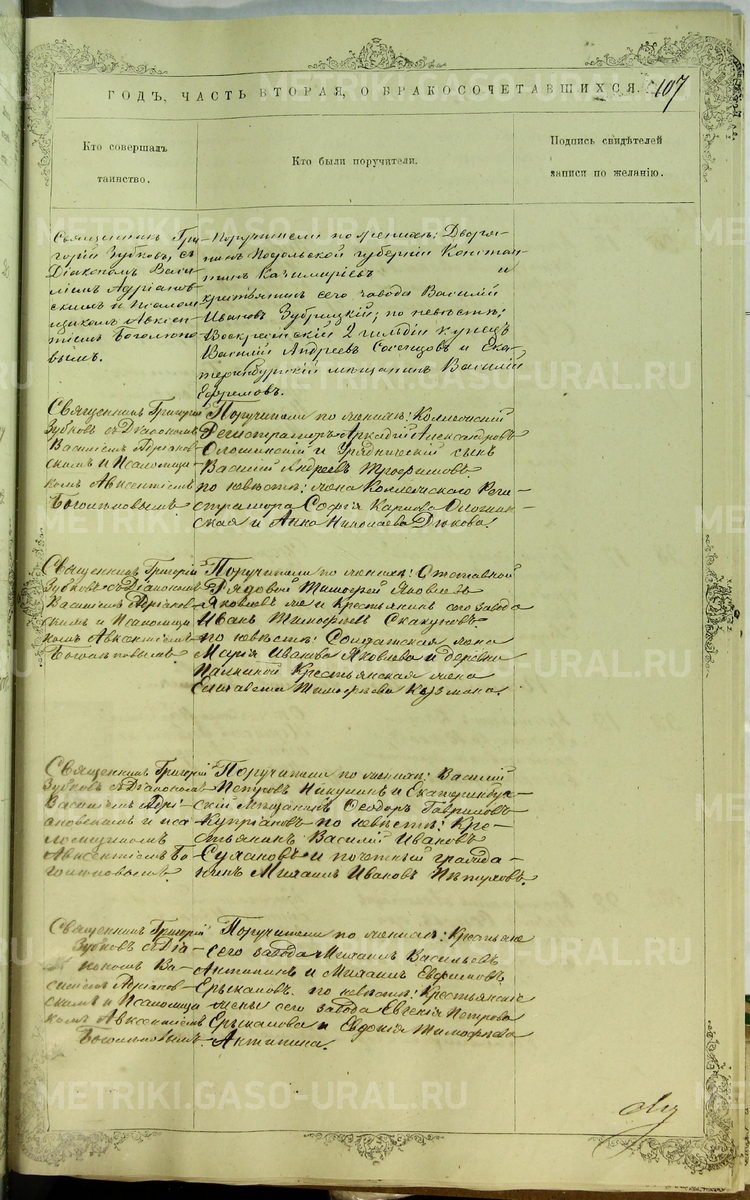 ГОДЪ, ЧАСТЬ ВТОРАЯ, О БРАКОСОЧЕТАВШИХСЯ. 107
Кто совершалъ
таинство.
Кто были поручители.
Подпись свидѣтелей
записи по желанію.
Священникъ Гри-
горій Зубковъ, съ
Діакономъ Васи-
ліемъ Адріанов-
скимъ и Псалом-
щикомъ Авксен-
тіемъ Боголѣпо-
вымъ.
Поручители по женихѣ: Дворя-
нинъ Подольской губерніи Констан-
тинъ Казиміріевъ и
крестьянинъ сего завода Василій
Ивановъ Зубрицкій; по невѣстѣ:
Воскресенскій 2 гильдіи купецъ
Василій Андреевъ и Ека-
теринбургскій мѣщанинъ Василій
Ефремовъ.
Священникъ Григорій
Зубковъ съ Діакономъ
Василіемъ Адріанов-
скимъ и Псаломщи-
комъ Авксентіемъ
Боголѣповымъ
Поручители по женихѣ: Коллежскій
Регистраторъ Аркадій Александровъ
и Урядническій сынъ
Василій Андреевъ Трофимовъ
по невѣстѣ: жена Коллежскаго Реги-
стратора Софія Карпова
ская и Анна Николаева Дюкова.
Священникъ Григорій
Зубковъ съ Діакономъ
Василіемъ Адріанов-
скимъ и Псаломщи-
комъ Авксентіемъ
Боголѣповымъ
Поручители по женихѣ: Отставной
Рядовой Тимофей Яковлевъ
Яковлевъ же и Крестьянинъ сего завода
Иванъ Тимофеевъ Скакуновъ
по невѣстѣ: Солдатская жена
Марія Иванова Яковлева и деревни
Крестьянская жена
Елисавета Тимофеева Козмина.
Священникъ Григорій
Зубковъ съ Діакономъ
Василіемъ Адрі-
ановскимъ и Пса
ломщикомъ
Авксентіемъ Бо-
голѣповымъ
Поручители по женихѣ: Василій
Петровъ Никулинъ и Екатеринбур-
скій Мѣщанинъ Ѳеодоръ Гавриловъ
Купріановъ по невѣстѣ: Кре-
стьянинъ Василій Ивановъ
Сулановъ и почетный гражда-
нинъ Михаилъ Ивановъ Пѣтуховъ.
Священникъ Григорій
Зубковъ съ Діа-
кономъ Ва-
силіемъ Адріанов-
скимъ и Псаломщи
комъ Авксентіемъ
Боголѣповымъ.
Поручители по женихѣ: Крестьяне
сего завода Михаилъ Васильевъ
Антипинъ и Михаилъ Евфимовъ
Ерыкаловъ. по невѣстѣ: Крестьянскіе
жены сего завода Евгенія Петрова
Ерыкалова и Евдокія Тимофеева
Антипина.
METRIKI.GASO-URAL.RU